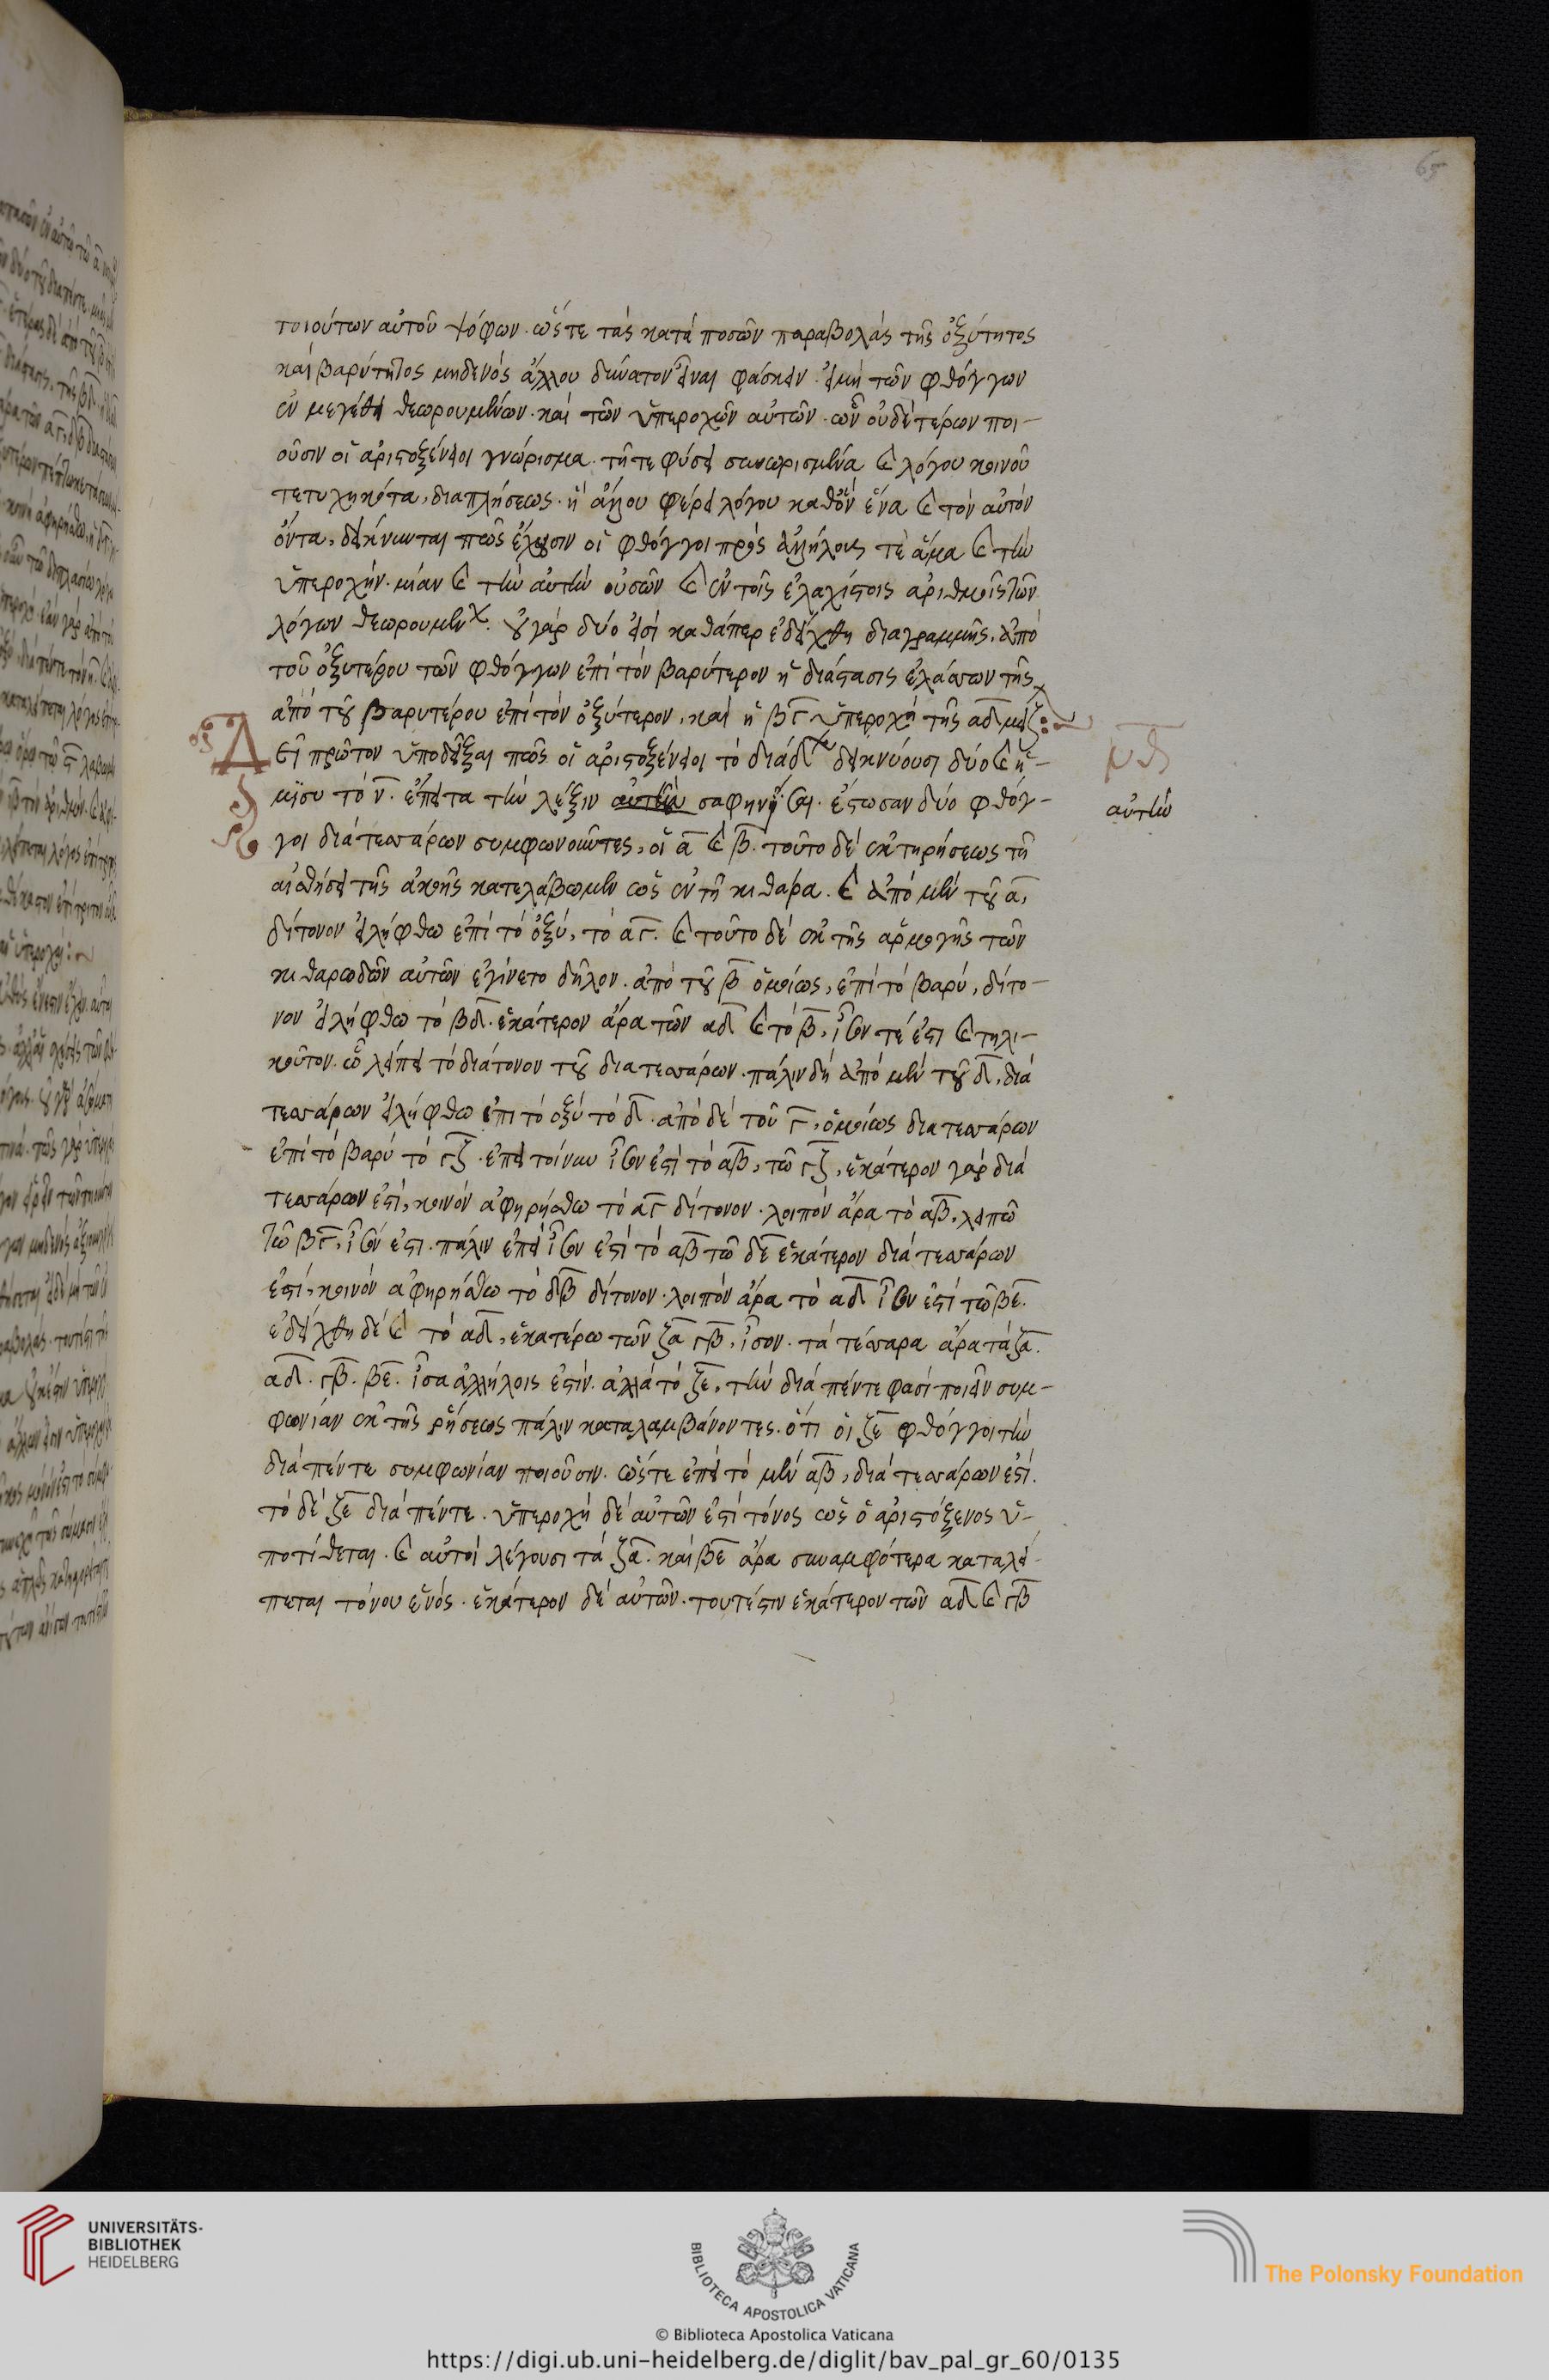 65
τοιούτων αὐτοῦ ψόφων. ὥστε τὰς κατὰ ποσῶν παραβολὰς τῆς ὀξύτητος
καὶ βαρύτητος μηδενὸς ἄλλου δυνατὸν εἶναι φάσκειν. εἰ μὴ τῶν φθόγγων
ἐν μεγέθει θεωρουμένων. καὶ τῶν ὑπεροχῶν αὐτῶν. ὧν οὐδετέρων ποι-
οῦσιν οἱ ἀριστοξένειοι γνώρισμα. τῇ τε φύσει συνωρισμένα καὶ λόγου κοινοῦ
τετυχηκότα, διαπλήσεως. ἢ ἄλλου φέρει λόγου καθ' ὃν ἕνα καὶ τὸν αὐτὸν
ὄντα, δείκνυνται πῶς ἔχουσιν οἱ φθόγγοι πρὸς ἀλλήλους τὲ ἅμα καὶ τὴν
ὑπεροχὴν. μίαν καὶ τὴν αὐτὴν οὐσῶν καὶ ἐν τοῖς ἐλαχίστοις ἀριθμοῖς τῶν
λόγων θεωρουμεν. οὐ γὰρ δύο εἰσὶ καθάπερ ἐδείχθη διαγραμμῆς, ἀπὸ
τοῦ ὀξυτέρου τῶν φθόγγων ἐπὶ τὸν βαρύτερον ἡ διάστασις ἐλάσσων τῆς
ἀπὸ τοῦ βαρυτέρου ἐπὶ τὸν ὀξύτερον, καὶ ἡ βγ ὑπεροχὴ τῆς αδ μείζ
Δεῖ πρῶτον ὑποδεῖξαι πῶς οἱ ἀριστοξένειοι τὸ διὰ δ δεικνύουσι δύο καὶ ἥ-
μισυ τόν. ἔπειτα τὴν λέξιν αὐτὴν σαφηνίσαι. ἔστωσαν δύο φθόγ-
γοι διὰ τεσσάρων συμφωνοῦντες, οἱ α καὶ β. τοῦτο δὲ ἐκ τηρήσεως τῇ
αἰσθήσει τῆς ἀκοῆς κατελάβωμεν ὡς ἐν τῇ κιθάρα. καὶ ἀπὸ μὲν τοῦ α,
δίτονον εἰλήφθω ἐπὶ τὸ ὀξύ, τὸ αγ. καὶ τοῦτο δὲ ἐκ τῆς ἁρμογῆς τῶν
κιθαρωδῶν αὐτῶν ἐγίνετο δῆλον. ἀπὸ τοῦ β ὁμοίως, ἐπὶ τὸ βαρύ, δίτο-
νον εἰλήφθω τὸ βδ. ἑκάτερον ἄρα τῶν αδ καὶ τὸ β, ἴσον τέ ἐστι καὶ τηλι-
κοῦτον. ᾧ λείπει τὸ διάτονον τοῦ διατεσσάρων. πάλιν δὴ ἀπὸ μὲν τοῦ δ, διὰ
τεσσάρων εἰλήφθω ἐπι τὸ ὀξύ τὸ δ. ἀπὸ δὲ τοῦ γ, ὁμοίως διατεσσάρων
ἐπὶ τὸ βαρύ τὸ γζ. ἐπεὶ τοίνυν ἴσον ἐστὶ τὸ αβ, τῶ γζ, ἑκάτερον γὰρ διὰ
τεσσάρων ἐστί, κοινὸν ἀφηρήσθω τὸ αγ δίτονον. λοιπὸν ἄρα τὸ αβ, λειπῶ
τῶ βγ, ἴσόν ἐστι. πάλιν ἐπεὶ ἴσον ἐστὶ τὸ αβ τῶ δε ἑκάτερον διὰ τεσσάρων
ἐστί, κοινὸν ἀφηρήσθω τὸ δβ δίτονον. λοιπὸν ἄρα τὸ αδ ἴσον ἐστὶ τῶ βε.
ἐδείχθη δὲ καὶ τὸ αδ, ἑκατέρω τῶν ζα γβ, ἴσον. τὰ τέσσαρα ἄρα τὰ ζα.
αδ. γβ. βε. ἴσα ἀλλήλοις ἐστίν. ἀλλὰ τὸ ζε, τὴν διὰ πέντε φασὶ ποιεῖν συμ-
φωνίαν ἐκ τῆς ῥήσεως πάλιν καταλαμβάνοντες. ὅτι οἱ ζε φθόγγοι τὴν
διὰ πέντε συμφωνίαν ποιοῦσιν. ὥστε ἐπεὶ τὸ μὲν αβ, διὰ τεσσάρων ἐστί.
τὸ δὲ ζε διὰ πέντε. ὑπεροχὴ δὲ αὐτῶν ἐστι τόνος ὡς ὁ ἀριστόξενος ὑ-
ποτίθεται. καὶ αὐτοὶ λέγουσι τὰ ζα. καὶ βε ἄρα συναμφότερα καταλεί-
πεται τόνου ἑνός. ἑκάτερον δὲ αὐτῶν. τουτέστιν ἑκάτερον τῶν αδ καὶ γβ
μθ
αὐτὴν
UNIVERSITÄTS-
BIBLIOTHEK
HEIDELBERG
BIBLIOTECA APOSTOLICA VATICANA
© Biblioteca Apostolica Vaticana
The Polonsky Foundation
https://digi.ub.uni-heidelberg.de/diglit/bav_pal_gr_60/0135